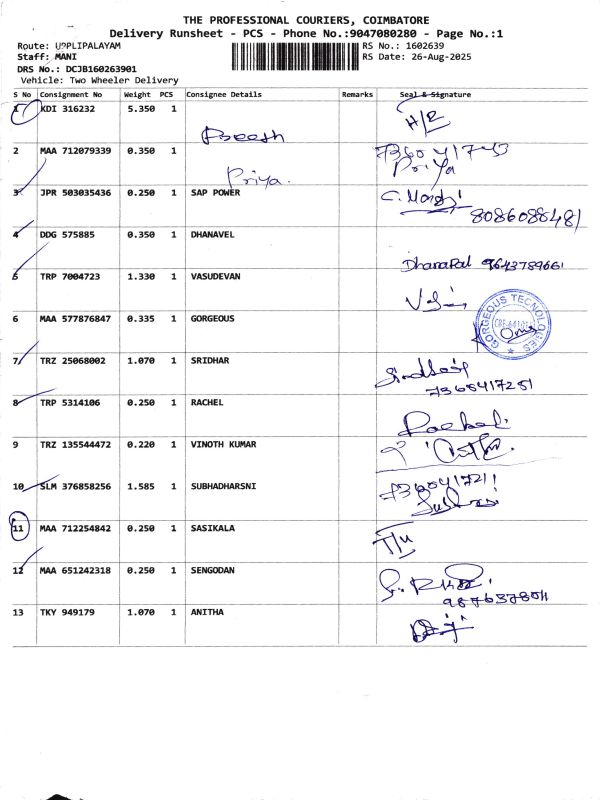 THE PROFESSIONAL COURIERS, COIMBATORE
Delivery Runsheet - PCS - Phone No.:9047080280 - Page No.:1
Route: UPPLIPALAYAM
RS No.: 1602639
Staff: MANI
RS Date: 26-Aug-2025
DRS No.: DCJB160263901
Vehicle: Two Wheeler Delivery
S No Consignment No Weight PCS Consignee Details Remarks Seal & Signature
1 KDI 316232 5.350 1 H/R
2 MAA 712079339 0.350 1 Priya
Priya.
3 JPR 503035436 0.250 1 SAP POWER
8086088481
4 DDG 575885 0.350 1 DHANAVEL
Dhanapal 9643789661
5 TRP 7004723 1.330 1 VASUDEVAN
6 MAA 577876847 0.335 1 GORGEOUS
GORGEOUS TECNOLOGIES
7 TRZ 25068002 1.070 1 SRIDHAR
7368417251
8 TRP 5314106 0.250 1 RACHEL
9 TRZ 135544472 0.220 1 VINOTH KUMAR
10 SLM 376858256 1.585 1 SUBHADHARSNI
11 MAA 712254842 0.250 1 SASIKALA
12 MAA 651242318 0.250 1 SENGODAN
13 TKY 949179 1.070 1 ANITHA